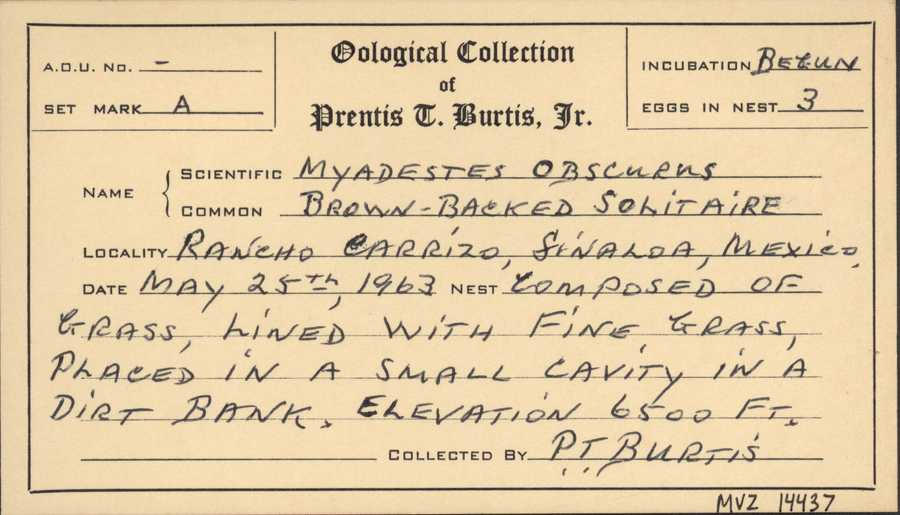 Oological Collection
of
Prentis T. Burtis, Jr.
A.O.U. No. -
SET MARK A
INCUBATION BEGUN
EGGS IN NEST 3
NAME
SCIENTIFIC MYADESTES OBSCURUS
COMMON BROWN-BACKED SOLITAIRE
LOCALITY RANCHO CARRIZO, SINALOA, MEXICO.
DATE MAY 25TH, 1963 NEST COMPOSED OF
GRASS, LINED WITH FINE GRASS,
PLACED IN A SMALL CAVITY IN A
DIRT BANK. ELEVATION 6500 FT.
COLLECTED BY P.T. BURTIS
MVZ 14437